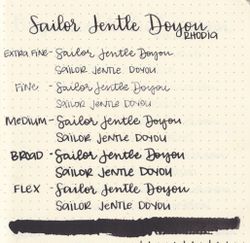 Sailor Jentle Doyou
RHODIA
EXTRA FINE - Sailor Jentle Doyou
SAILOR JENTLE DOYOU
FINE - Sailor Jentle Doyou
SAILOR JENTLE DOYOU
MEDIUM - Sailor Jentle Doyou
SAILOR JENTLE DOYOU
BROAD - Sailor Jentle Doyou
SAILOR JENTLE DOYOU
FLEX - Sailor Jentle Doyou
SAILOR JENTLE DOYOU